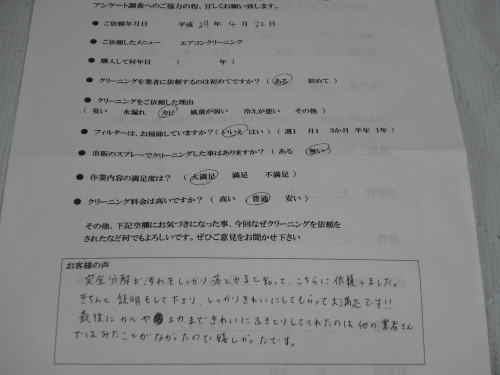 アンケート調査へのご協力の程、宜しくお願い致します。
● ご依頼年月日　平成 29 年 4 月 22 日
● ご依頼したメニュー　エアコンクリーニング
● 購入して何年目（　　年）
● クリーニングを業者に依頼するのは初めてですか？（ ある　初めて ）
● クリーニングをご依頼した理由
（ 臭い　水漏れ　カビ　風量が弱い　冷えが悪い　その他 ）
● フィルターは、お掃除していますか？（ いいえ　はい ）（ 週1　月1　3か月　半年　1年）
● 市販のスプレーでクリーニングした事はありますか？（ ある　無い ）
● 作業内容の満足度は？（ 大満足　満足　不満足 ）
● クリーニング料金は高いですか？（ 高い　普通　安い ）
その他、下記空欄にお気づきになった事、今回なぜクリーニングを依頼を
されたなど何でもよろしいです。ぜひご意見をお聞かせ下さい
お客様の声
完全分解が汚れをしっかり落とせると知って、こちらに依頼しました。
きちんと説明もして下さり、しっかりきれいにしてもらって大満足です!!
最後にかべや ユカまできれいにふきとりしてくれたのは他の業者さん
ではみたことがなかったので嬉しかったです。